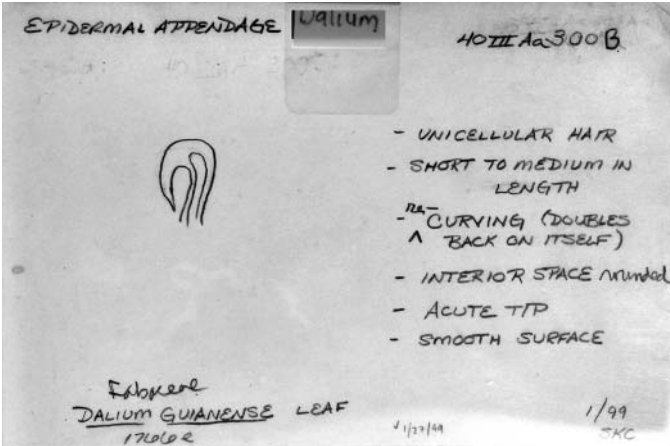 EPIDERMAL APPENDAGE
Dalium
40 III Aa 300 B
- UNICELLULAR HAIR
- SHORT TO MEDIUM IN
LENGTH
- re-
^ CURVING (DOUBLES
BACK ON ITSELF)
- INTERIOR SPACE rounded
- ACUTE TIP
- SMOOTH SURFACE
DALIUM GUIANENSE LEAF
1/99
SKC
√ 1/27/99